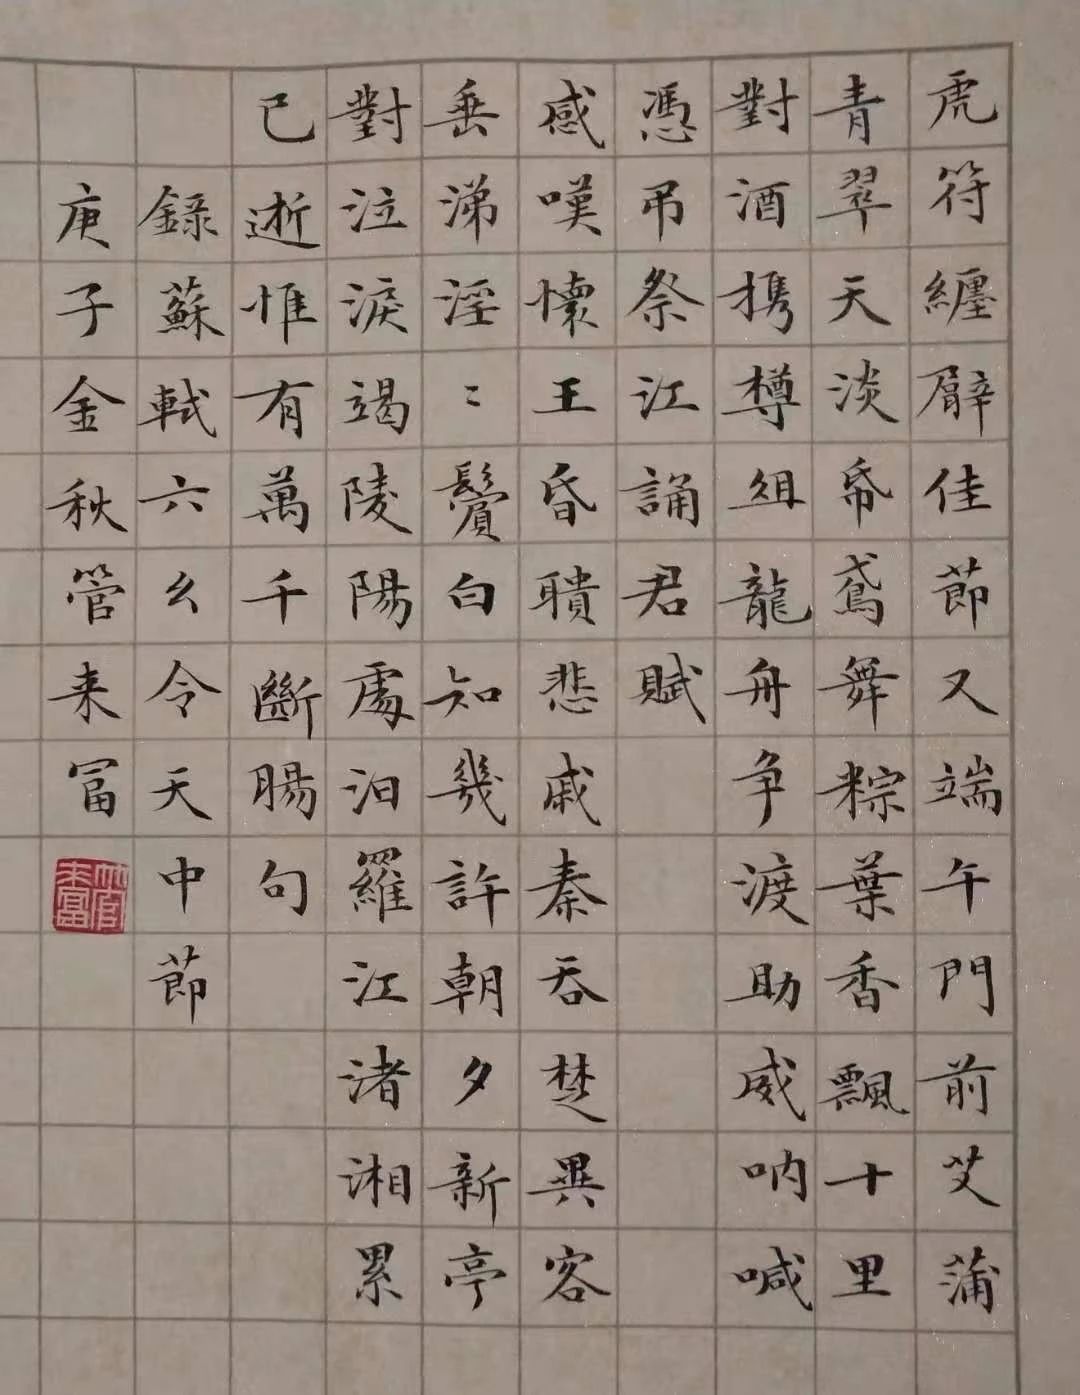 虎符纏臂佳節又端午門前艾蒲
青翠天淡帋鳶舞粽葉香飄十里
對酒携樽俎龍舟爭渡助威吶喊
憑弔祭江誦君賦
感嘆懷王昏聵悲戚秦吞楚異客
垂涕淫〻鬢白知幾許朝夕新亭
對泣淚竭陵陽處汨羅江渚湘累
已逝惟有萬千斷腸句
錄蘇軾六幺令天中節
庚子金秋管来冨
管来冨